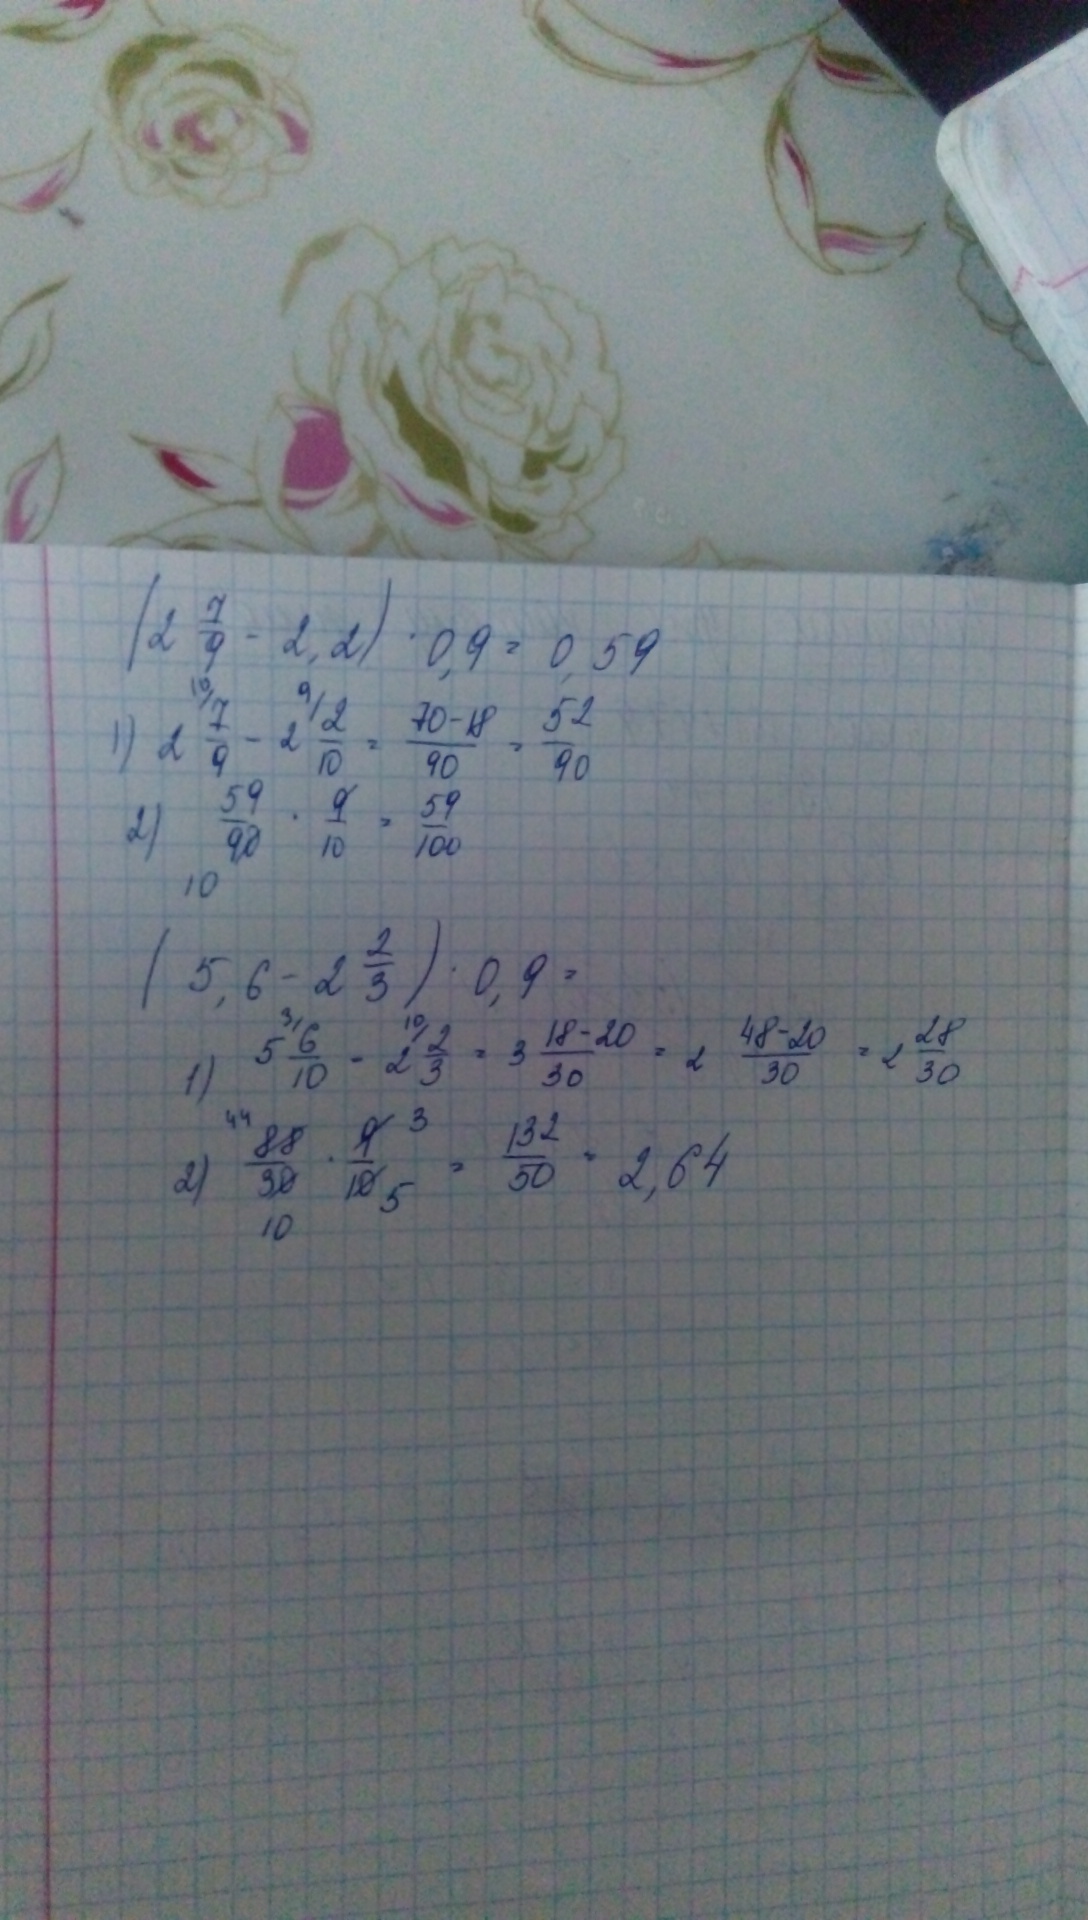 (2 7/9 - 2,2) · 0,9 = 0,59
1) 2 7/9 (10/) - 2 2/10 (9/) = (70-18)/90 = 52/90
2) 59/90 · 9/10 = 59/100
10
(5,6 - 2 2/3) · 0,9 =
1) 5 6/10 (3/) - 2 2/3 (10/) = 3 (18-20)/30 = 2 (48-20)/30 = 2 28/30
2) 44 88/30 · 9/10 3 5 = 132/50 = 2,64
10